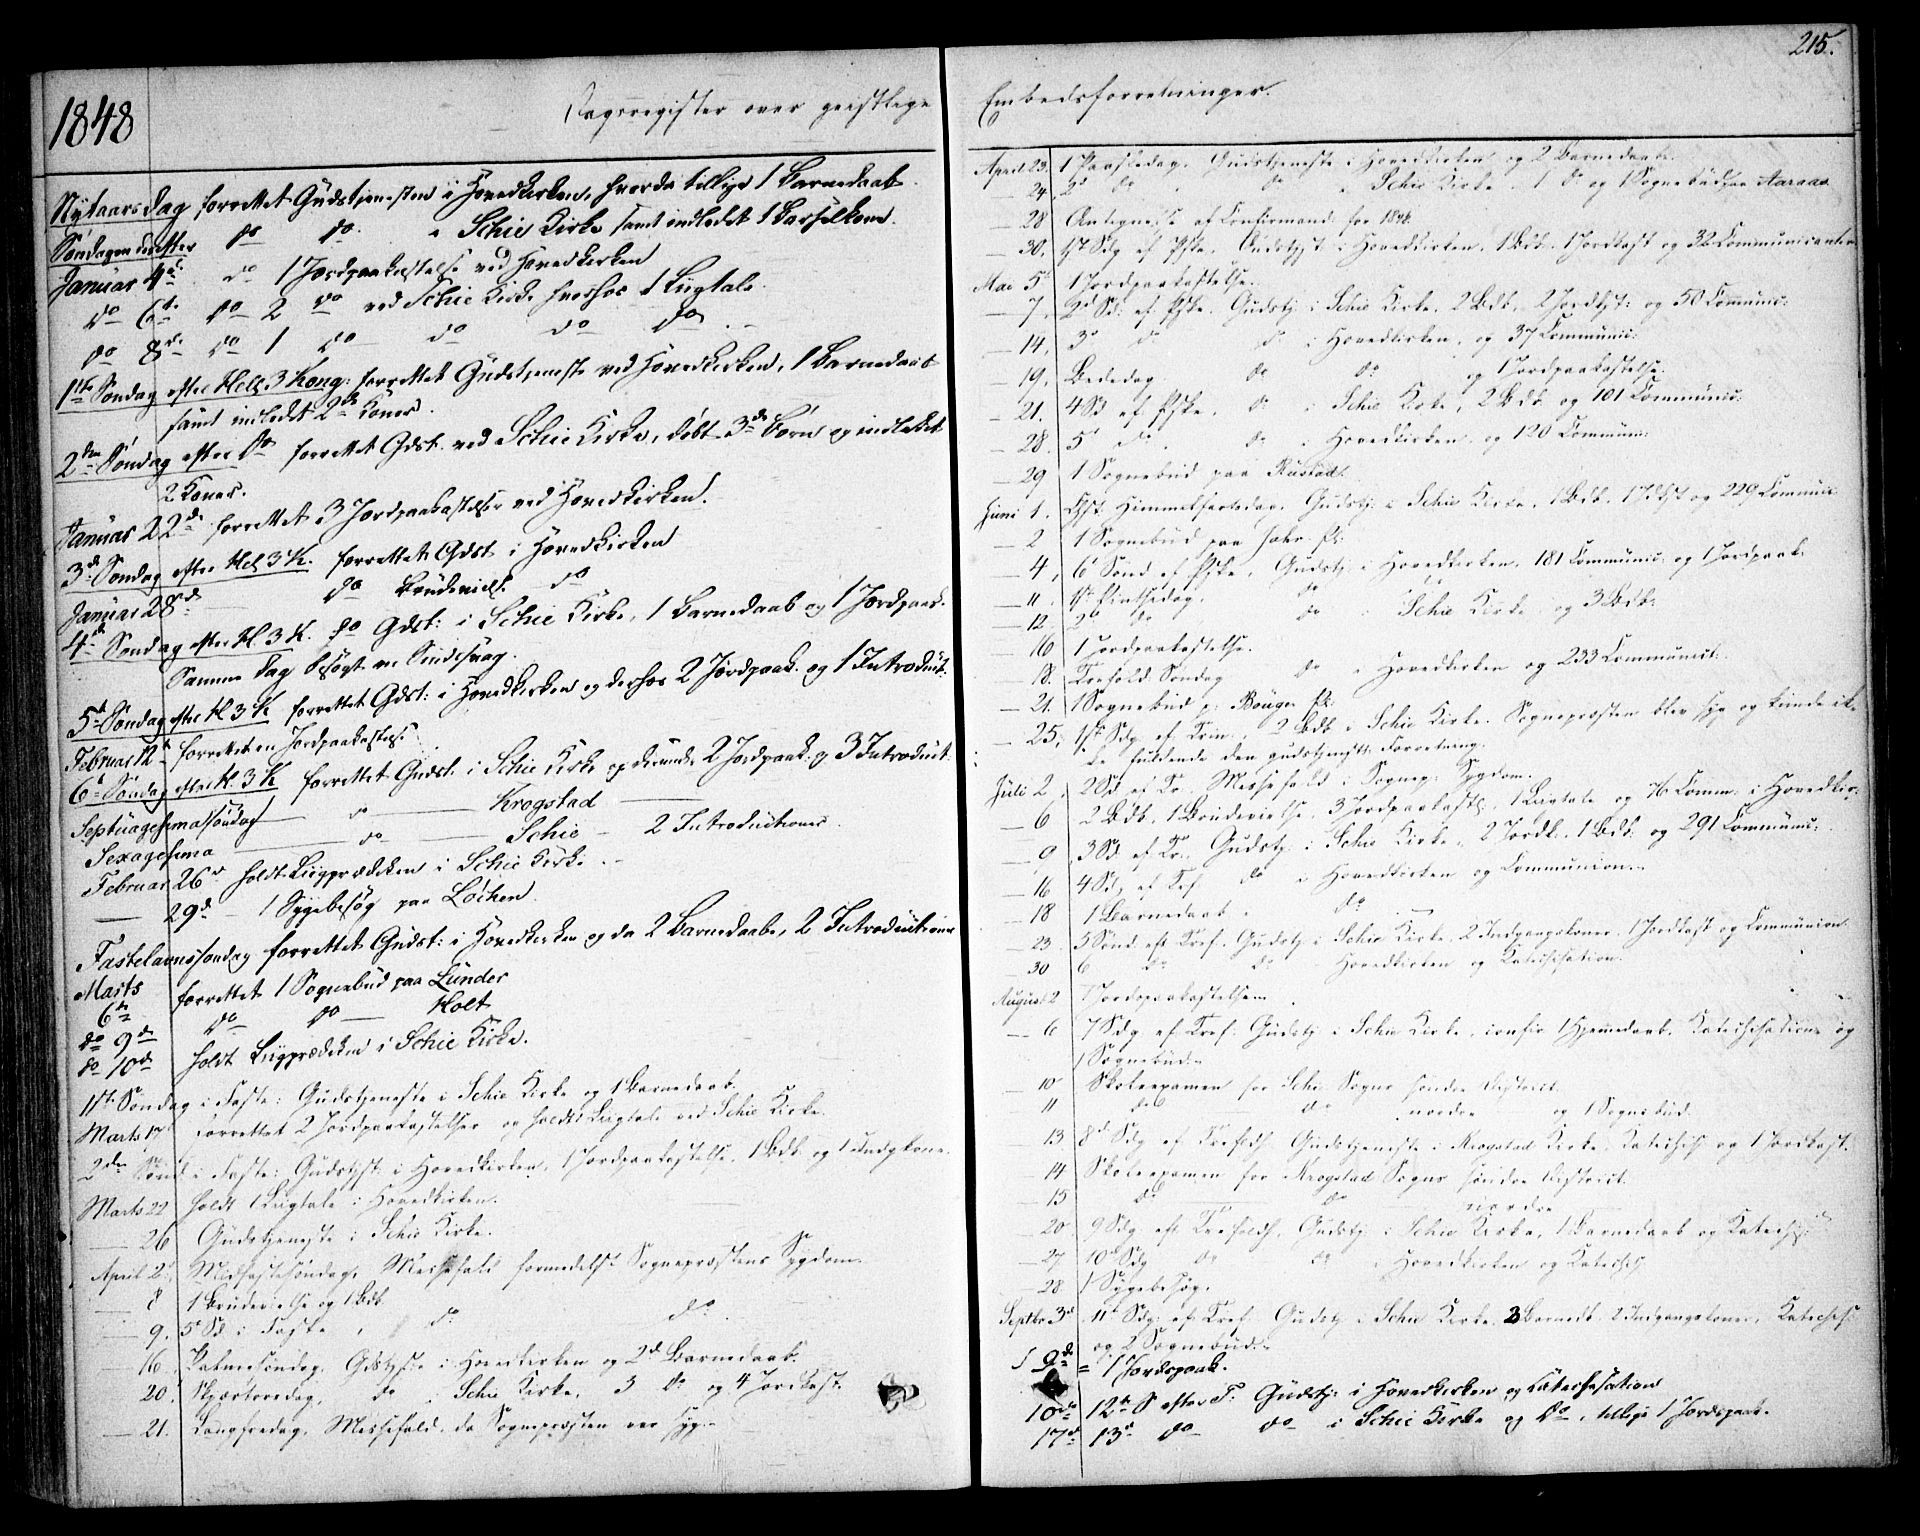 215.
1848
Dagsregister over geistlige Embedsforretninger.
Nytaarsdag forrettet Gudstjenesten i Hovedkirken, hvorda tillige 1 Barnedaab.
Søndagen derefter do do i Schie Kirke samt indledet 1 Barselkone.
Januar 4de do 1 Jordpaakastelse ved Hovedkirken
do 6te do 2 do ved Schie Kirke hvorhos 1 Liigtale.
do 8de do 1 do do do do
1ste Søndag efter Hell. 3 Kong: forrettet Gudstjeneste ved Hovedkirken, 1 Barnedaab
samt indledet 2de Koner.
2den Søndag efter do forrettet Gdst. ved Schie Kirke, døbt 3de Børn og indledet
2 Koner.
Januar 22de forrettet 3 Jordpaakastelser ved Hovedkirken.
3de Søndag efter Hel 3 K. forrettet Gdst i Hovedkirken
Januar 28de do Brudeviels. do
4de Søndag efter H. 3 K. do Gdst: i Schie Kirke, 1 Barnedaab og 1 Jordpaak.
Samme Dag besøgt en Sindssvag.
5te Søndag efter H 3 K forrettet Gdst: i Hovedkirken og derhos 2 Jordpaak. og 1 Introduct:
Februar 12te forrettet en Jordpaakastelse
6te Søndag efter H. 3 K forrettet Gudst. i Schie Kirke og derunder 2 Jordpaak. og 3 Introduct.
Septuagesimasøndag do Krogstad
Sexagesima do Schie 2 Introductioner
Februar 26de holdt Liigprædiken i Schie Kirke.
29de 1 Sygebesøg paa Løchen.
Fastelavnssøndag forrettet Gudst: i Hovedkirken og da 2 Barnedaabe, 2 Introductioner
Marts 6te forrettet 1 Sognebud paa Lunder
do 9de do do Holt
do 10de holdt Liigprædiken i Schie Kirke.
1ste Søndag i Faste: Gudstjeneste i Schie Kirke og 1 Barnedaab.
Marts 17 forrettet 2 Jordpaakastelser og holdt Liigtale ved Schie Kirke.
2den Sønd i Faste: Gudstjst: i Hovedkirken, 1 Jordpaakastelse, 1 Bdb og 1 Indgkone.
Marts 22 holdt 1 Liigtale i Hovedkirken.
26 Gudstjeneste i Schie Kirke.
April 2 Midfastesøndag, Messefald formedelst Sognepræstens Sygdom.
8 1 Brudevielse og 1 Bdb
9. 5 Sd i Faste, do do
16 Palmesøndag, Gdstjste i Hovedkirken og 2de Barnedaab.
20. Skjærtorsdag, do i Schie Kirke, 3 do og 4 Jordkast.
21. Langfredag, Messefald, da Sognepræsten var syg.
April 23. 1 Paaskedag, Gudstjeneste i Hovedkirken og 2 Barnedaabe.
24. 2 do do i Schie Kirke, 1 do og 1 Sognebud paa Aaraas
28 Antegnelse af Confirmand: for 1848.
30. 1st Sdg ef Pske, Gudstjst i Hovedkirken, 1 Bdb, 1 Jordkast og 32 Communicanter
Mai 5te 1 Jordpaakastelse.
7. 2 Sd: ef Pske. Gudstj: i Schie Kirke, 2 Bdb, 2 Jordkst: og 50 Communic:
14. 3 do do i Hovedkirken, og 37 Communic:
19. Bededag do do og 1 Jordpaakastelse.
21. 4 Sd ef Pske, do i Schie Kirke, 2 Bdb og 101 Communic:
28. 5 do do i Hovedkirken, og 120 Commun:
29 1 Sognebud paa Rustad.
Juni 1. Chst. Himmelfartsdag, Gudstj: i Schie Kirke, 1 Bdb, 1 Jdkst og 229 Communic
2 1 Sognebud paa
4, 6 Sønd. ef Pske, Gudstj: i Hovedkirken, 181 Communic. og 1 Jordpaak:
11. 1st Pintsedag, do
12 2 do do i Schie Kirke, og 3 Bdb:
16 1 Jordpaakastelse.
18. Trefold: Søndag do i Hovedkirken og 233 Communict:
21. 1 Sognebud p:
25, 1st Sdg ef Trin., 2 Bdb i Schie Kirke. Sognepræsten blev syg og kunde ik-
ke fuldende den gudstjenestl: Forretning.
Juli 2, 2 Sd ef Tr. Messefald i Sognep: Sygdom.
6 2 Bdb, 1 Brudevielse, 3 Jordpaakastl:, 1 Liigtale og 76 Comm: i Hovedkir:
9 3 Sd ef Tr. Gudstj: i Schie Kirke, 2 Jordk., 1 Bdb. og 291 Communic:
16 4 Sd, ef Tref do i Hovedkirken og Communion.
18 1 Barnedaab do
23 5 Sønd. eft Tref. Gudstj i Schie Kirke, 2 Indgangskoner, 1 Jordkast og Communion
30 6 do do Hovedkirken og Katechisation.
August 2 1 Jordpaakastelse
6 7 Sdg ef Tref: Gudstj i Schie Kirke, confir 1 Hjemmedaab, Katechisation og
1 Sognebud.
10 Skoleexamen for Schie Sogns søndre District.
11 do do nordre og 1 Sognebud.
13 8 Sdg ef Trefoldh. Gudstjeneste i Krogstad Kirke, Katechis og 1 Jordkast.
14 Skoleexamen for Krogstad Sogns søndre District.
15 do do nordre
20 9 Sdg eft Trefoldh, Gudstj. i Schie Kirke, 1 Barnedaab og Katechis:
27 10 Sdg do do i Hovedkirken og Katechis
28 1 Sygebesøg.
Septbr 3d 11te Sdg: ef Tref: Gudstj i Schie Kirke, 3 Barnedb, 2 Indgangskoner, Katechis:
og 2 Sognebud.
9de = 1 Jordspaak.
10de 12te S efter T. Gudstj: i Hovedkirken og Catechisation
17de 13de do do i Schie Kirke og do, tillige 1 Jordspaak.